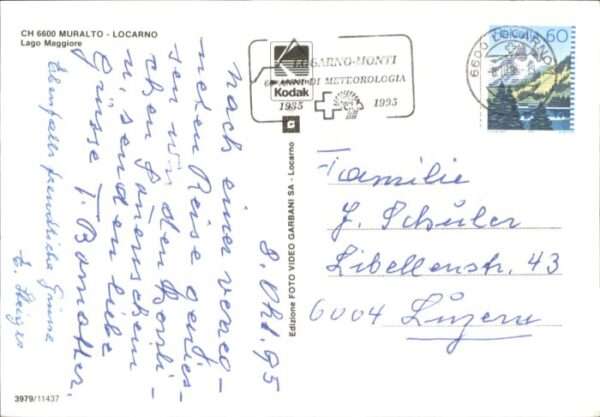 CH 6600 MURALTO - LOCARNO
Lago Maggiore
8. Okt. 95
Nach einer verco-
Reise genies-
sen wir den
u. senden liebe
Grüsse T.
Ebenfalls freundliche Grüsse
3979/11437
Edizione FOTO VIDEO GARBANI SA - Locarno
Kodak
LOCARNO-MONTI
60 ANNI DI METEOROLOGIA
1935 1995
6600 LOCARNO
60
Familie
J. Schüler
Libellenstr. 43
6004 Luzern